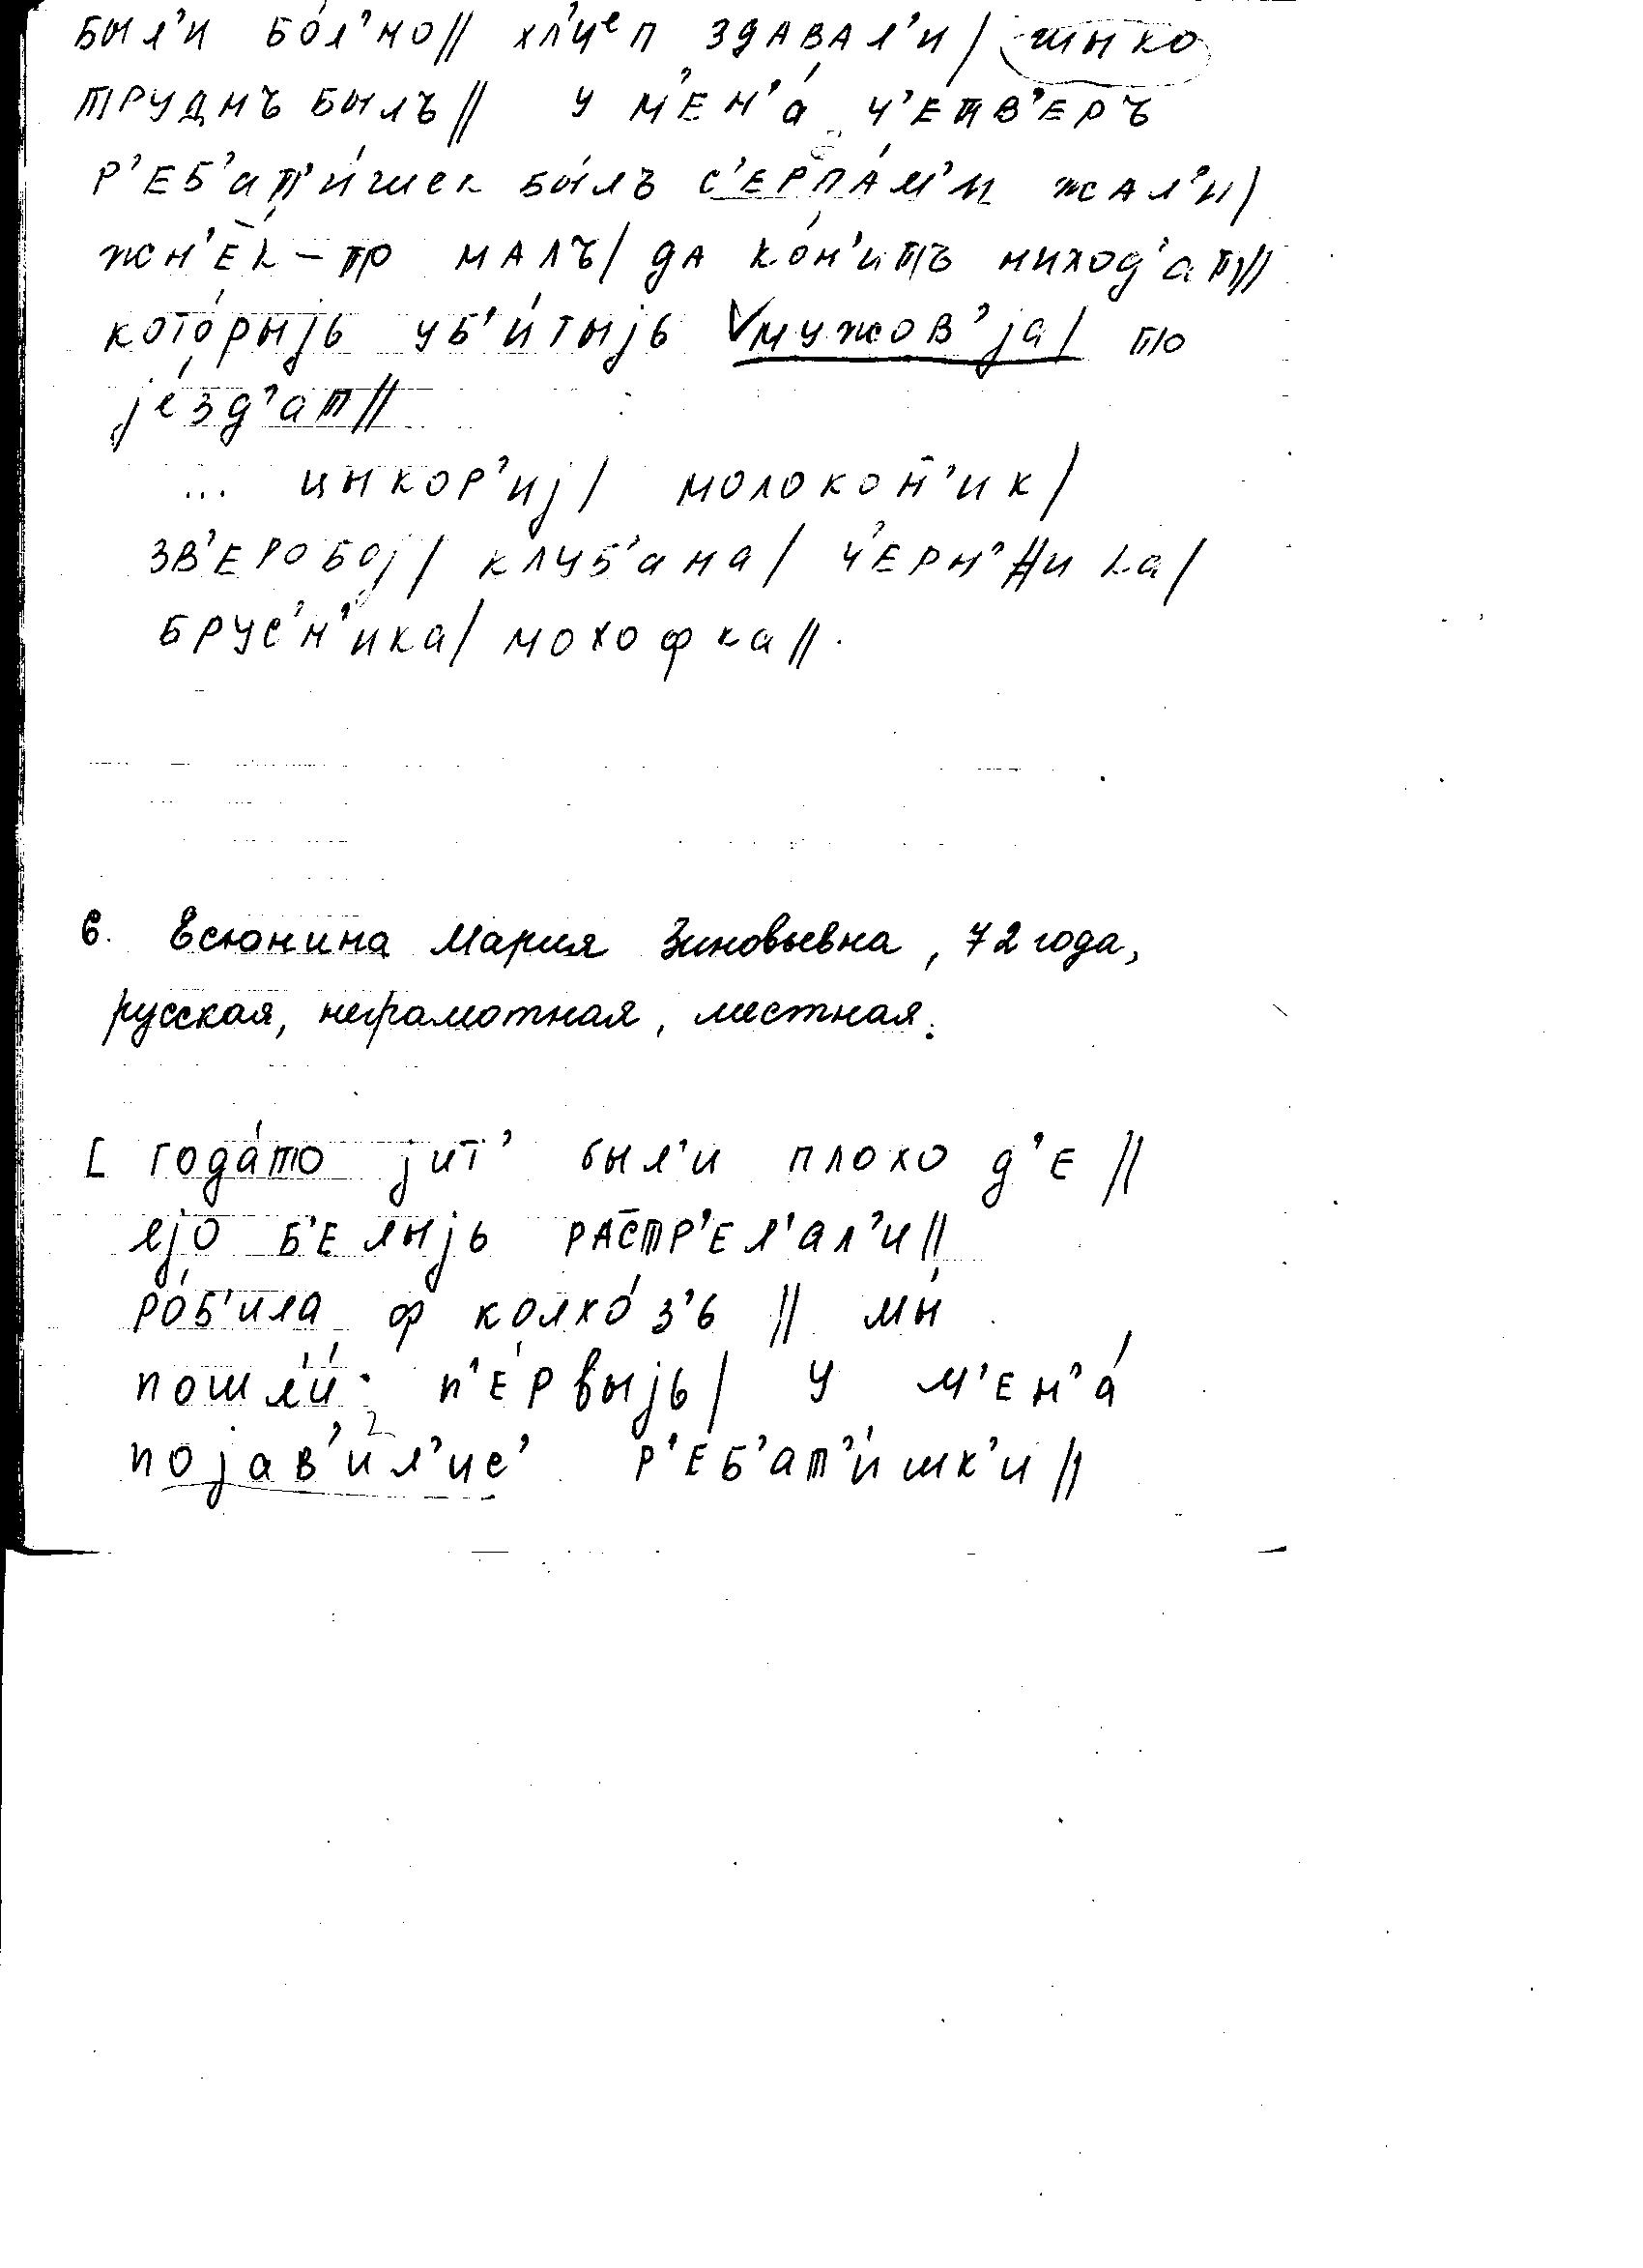 были бо́л'но// хл'иᵉп здавал'и/ шыко
труднъ былъ// у м'ен'а́ ч'етв'еръ
р'еб'ат'и́шек бы́лъ с'ерпа́м'и жал'и/
жн'е́к-то малъ/ да ко́н'итъ ниход'ат//
кото́рыjь уб'и́тыjь мужов'jа/ то
jе́зд'ат//
... цыкор'иj/ молокон̄'ик/
зв'еробоj/ клуб'ана/ ч'ерн'ика/
брус'н'ика/ мохофка//.
6. Есюнина Мария Зиновьевна, 72 года,
русская, неграмотная, местная.
[ года́то jит' был'и плохо д'е //
jо б'елыjь растр'ел'ал'и//
ро́б'ила ф колхо́з'ь // мы́
пошл'и́ п'е́рвыjь/ у м'ен'а́
поjав'и́л'ис' р'еб'ат'и́шк'и//